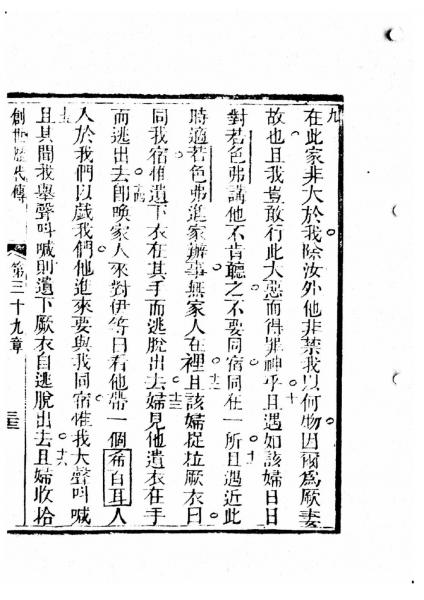 九在此家非大於我除汝外他非禁我以何物因爾為厥妻
故也且我豈敢行此大惡而得罪神乎且遇如該婦日日十
對若色弗講他不肯聽之不要同宿同在一所且遇近此十一
時適若色弗進家辦事無家人在裡且該婦捉拉厥衣曰十二
同我宿惟遺下衣在其手而逃脫出去婦見他遺衣在手十三
而逃出去即喚家人來對伊等曰看他帶一個希白耳人十四
於我們以戲我們他進來要與我同宿惟我大聲呌喊十五
且其聞我舉聲呌喊則遺下厥衣自逃脫出去且婦收拾十六
創世歷代傳 第三十九章